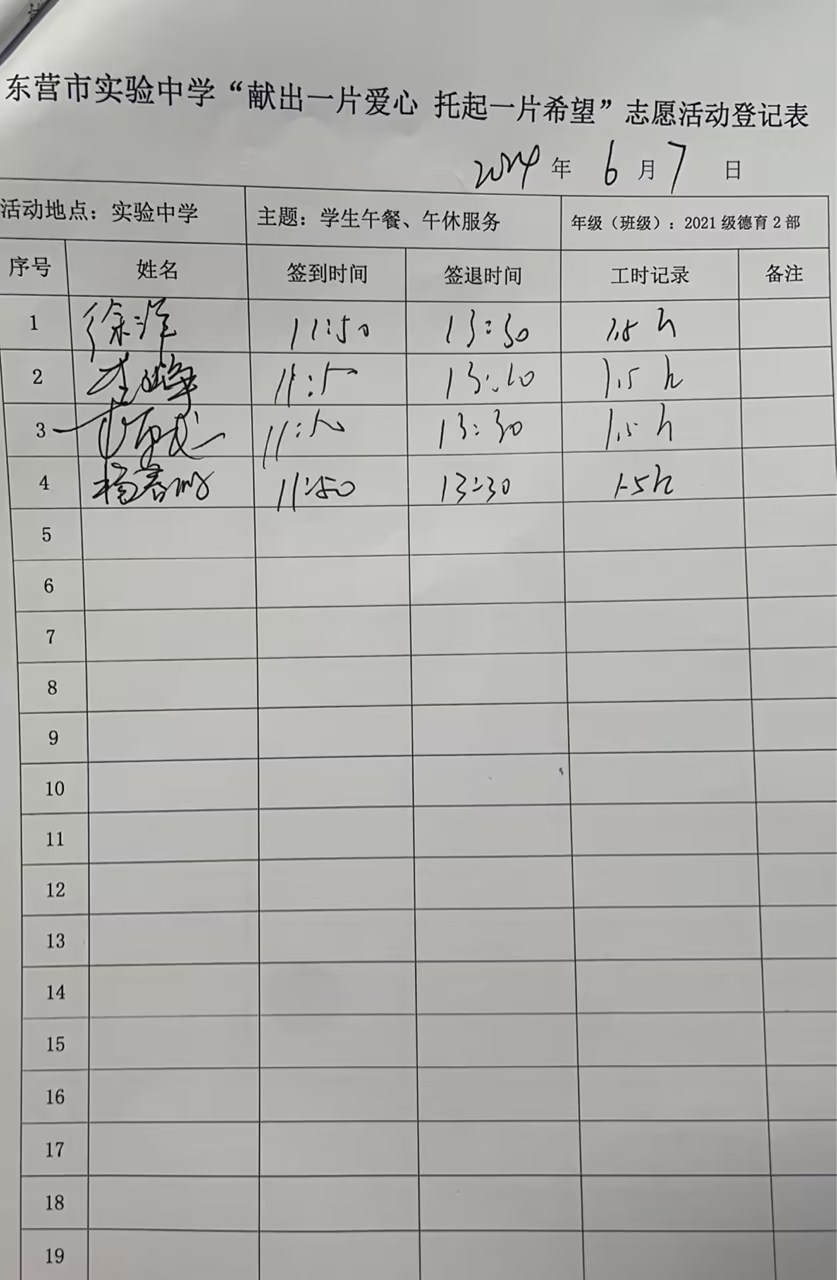 东营市实验中学“献出一片爱心 托起一片希望”志愿活动登记表
2024 年 6 月 7 日
活动地点：实验中学 主题：学生午餐、午休服务 年级（班级）：2021 级德育 2 部
序号 姓名 签到时间 签退时间 工时记录 备注
1 徐洋 11:50 13:30 1.5 h
2 11:5 1.5 h
3 13:30 1.5 h
4 杨春 11:50 13:30 1.5h
5
6
7
8
9
10
11
12
13
14
15
16
17
18
19